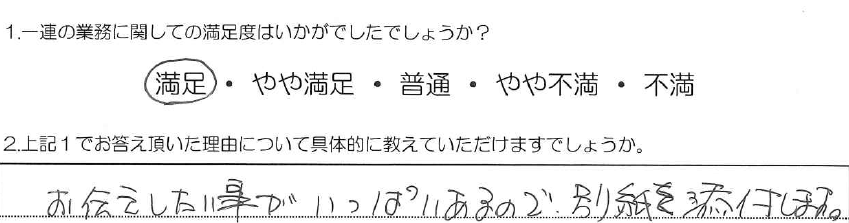 1.一連の業務に関しての満足度はいかがでしたでしょうか？
満足 ・ やや満足 ・ 普通 ・ やや不満 ・ 不満
2.上記１でお答え頂いた理由について具体的に教えていただけますでしょうか。
お伝えしたい事が いっぱいあるので、別紙を添付します。